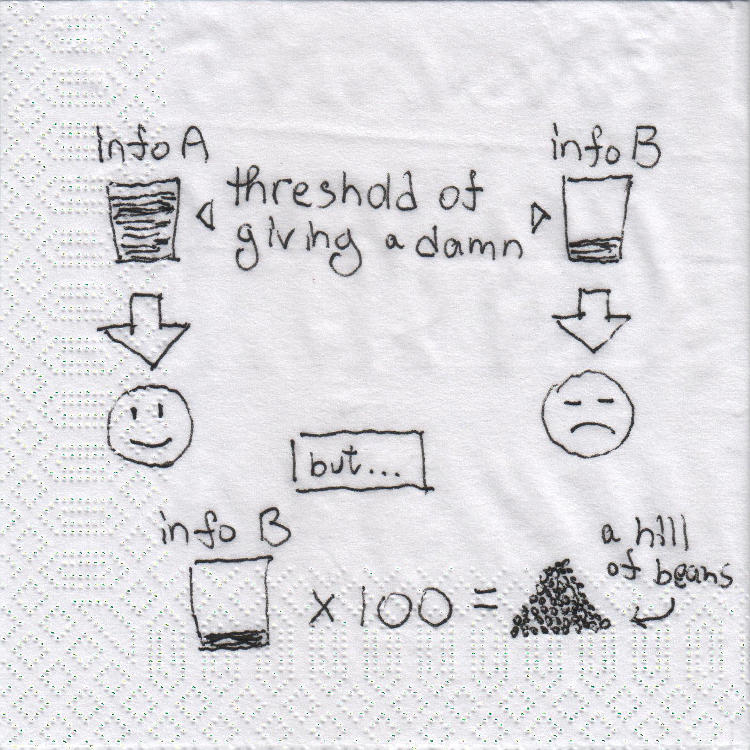 info A
info B
threshold of
giving a damn
but...
info B
x 100 =
a hill
of beans